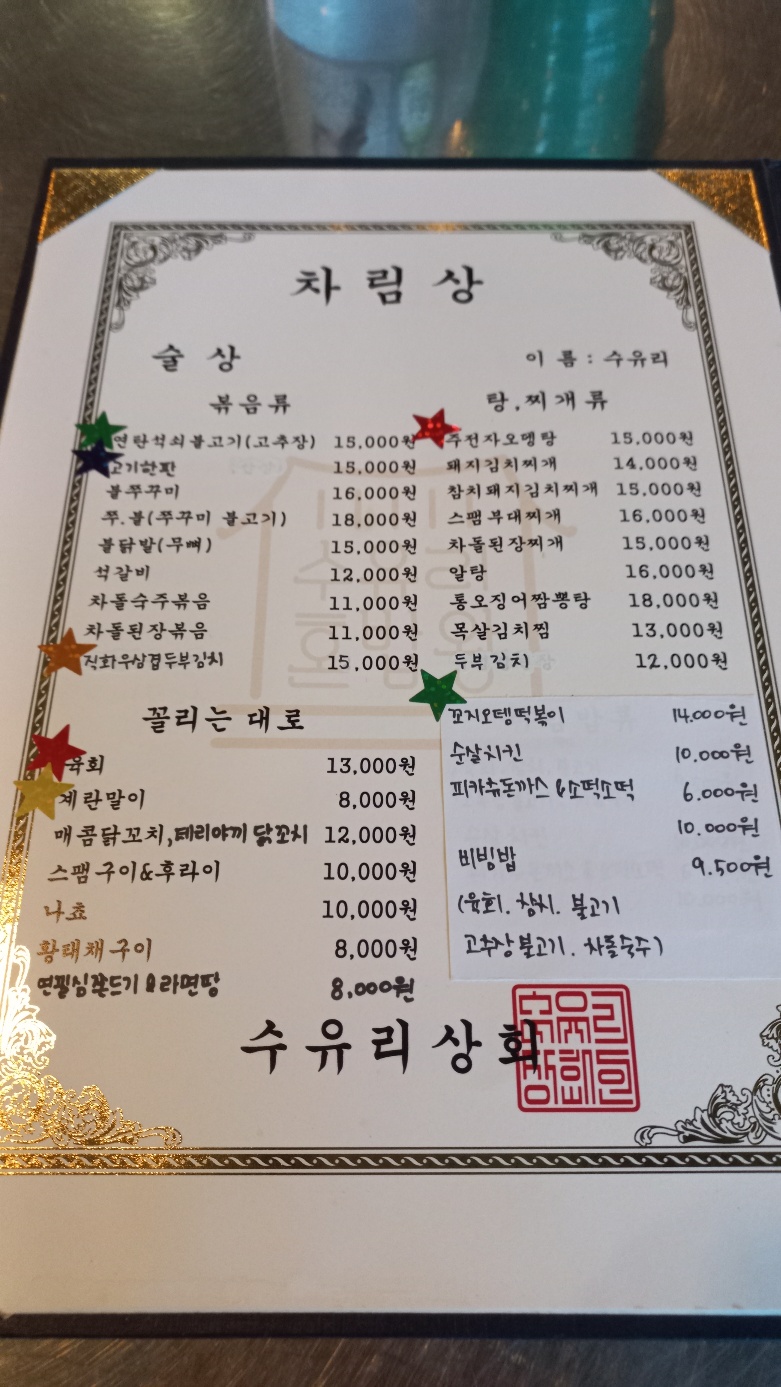 차림상
술상
이 름 : 수유리
볶음류
연탄석쇠불고기(고추장) 15,000원
고기한판 15,000원
불쭈꾸미 16,000원
쭈.불(쭈꾸미 불고기) 18,000원
불닭발(무뼈) 15,000원
석갈비 12,000원
차돌숙주볶음 11,000원
차돌된장볶음 11,000원
직화우삼겹두부김치 15,000원
탕,찌개류
주전자오뎅탕 15,000원
돼지김치찌개 14,000원
참치돼지김치찌개 15,000원
스팸부대찌개 16,000원
차돌된장찌개 15,000원
알탕 16,000원
통오징어짬뽕탕 18,000원
목살김치찜 13,000원
두부김치 12,000원
꼴리는 대로
육회 13,000원
계란말이 8,000원
매콤닭꼬치,테리야끼 닭꼬치 12,000원
스팸구이&후라이 10,000원
나쵸 10,000원
황태채구이 8,000원
연필심쫀드기&라면땅 8,000원
꼬지오뎅떡볶이 14.000원
순살치킨 10.000원
피카츄돈까스&소떡소떡 6.000원
10.000원
비빙밥 9.500원
(육회. 참치. 불고기
고추장불고기. 차돌숙주)
수유리상회